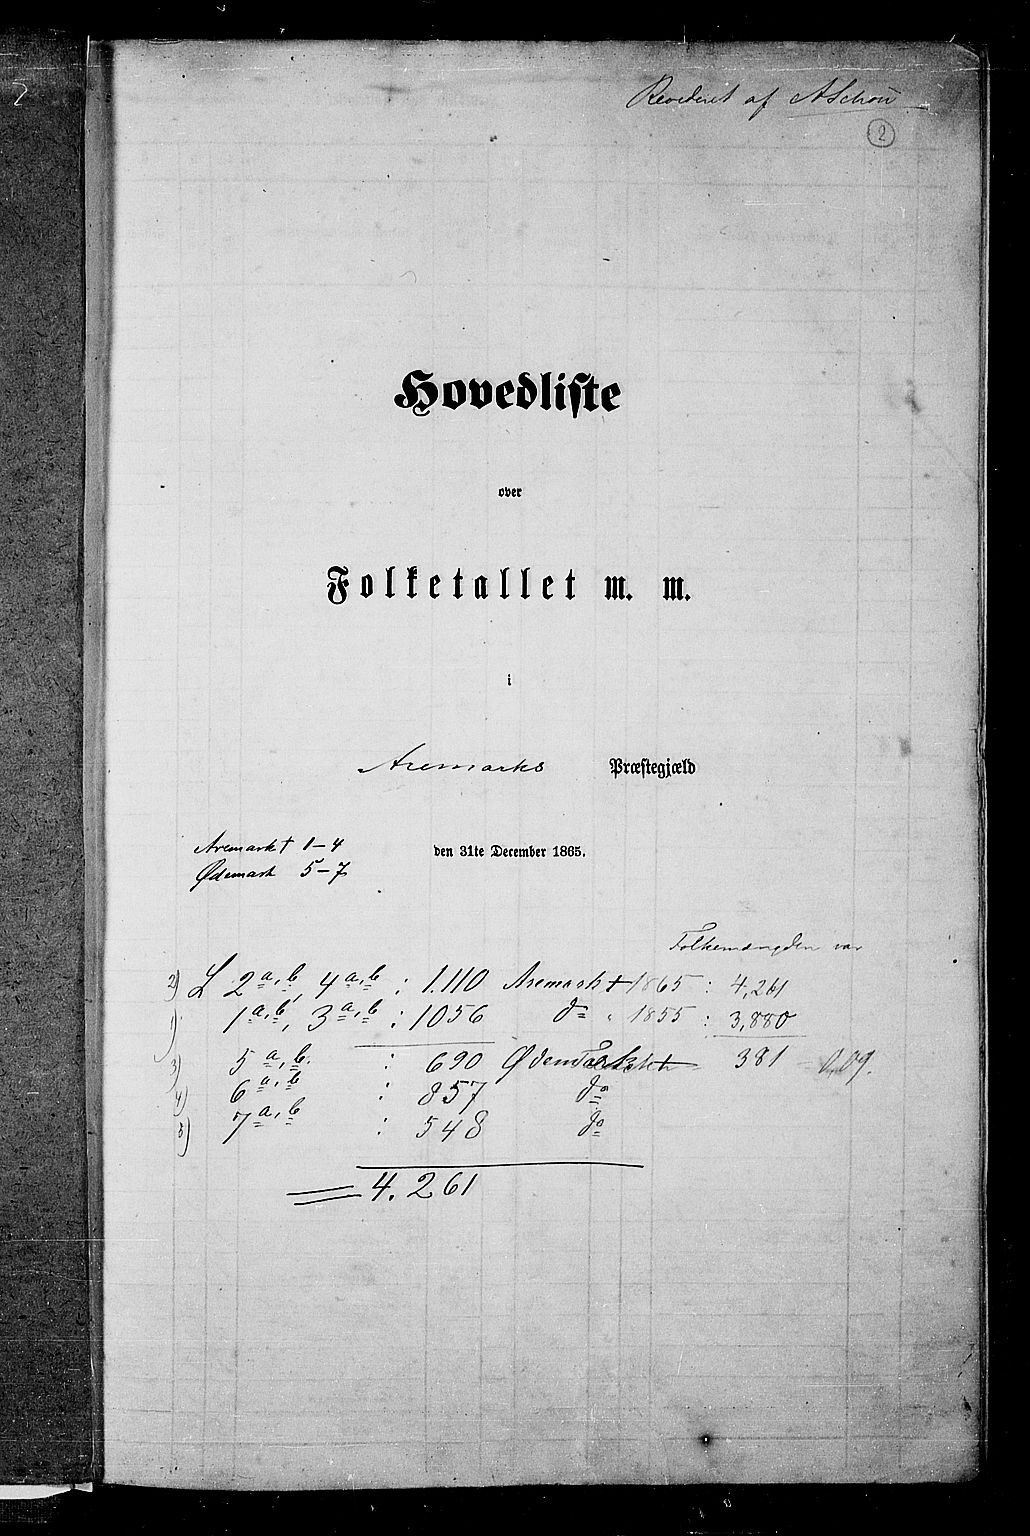 Revideret af ASchou
2
Hovedliste
over
Folketallet m. m.
i
Aremarks Præstegjæld
Aremark † 1-4
den 31te December 1865.
Ødemark 5-7
Folkemængden var
2) L 2 a,b, 4 a,b : 1.110 Aremark † 1865 : 4,261
1) 1 a,b, 3 a,b : 1056 do 1855 : 3,880
3) 5 a,b. : 690 Ødemark 381 0,09.
4) 6 a,b : 857 do
5) 7 a,b : 548 do
4.261